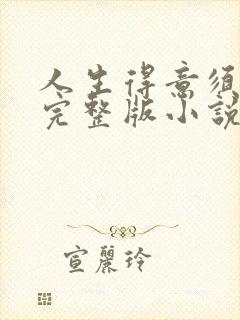 人生得意须
完整版小說
宣麗玲